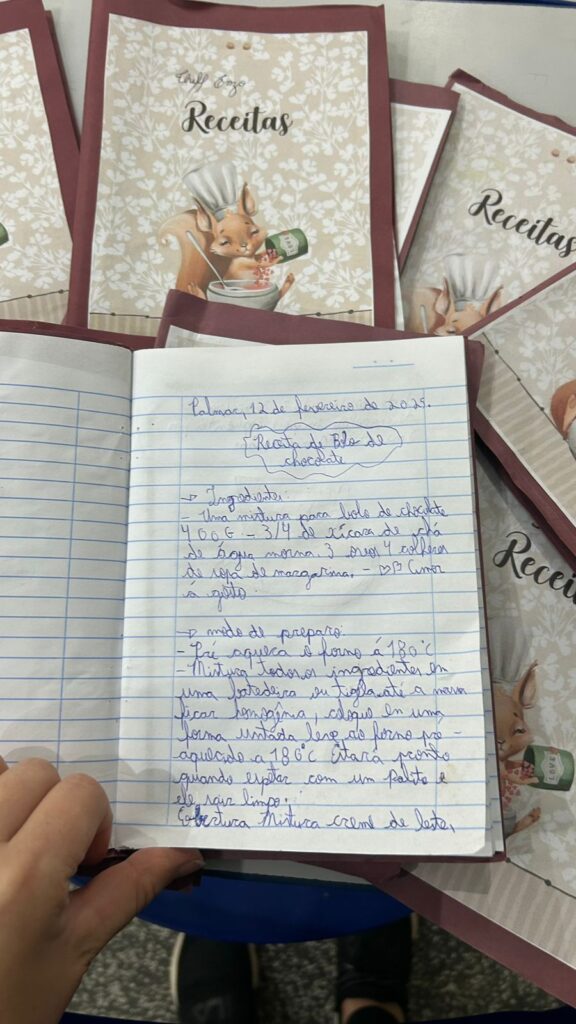 Cheff Enzo
Receitas
Receitas
Recei
LOVE
Palmar, 12 de fevereiro de 2025.
Receita de Bolo de
chocolate
→ Ingredientes:
- Uma mistura para bolo de chocolate
400G - 3/4 de xícara de chá
de água morna. 3 ovos 4 colheres
de sopa de margarina. - ♡♡ Amor
á gosto.
→ modo de preparo:
- Pré aqueça o forno á 180°c
- Mistura todos os ingredientes em
uma batedeira ou tigla até a massa
ficar homogênia, coloque en uma
forma untada leve ao forno pré -
aquecido a 180°c Estará pronto
quando espetar com um palito e
ele sair limpo;
Cobertura Mistura creme de leite,